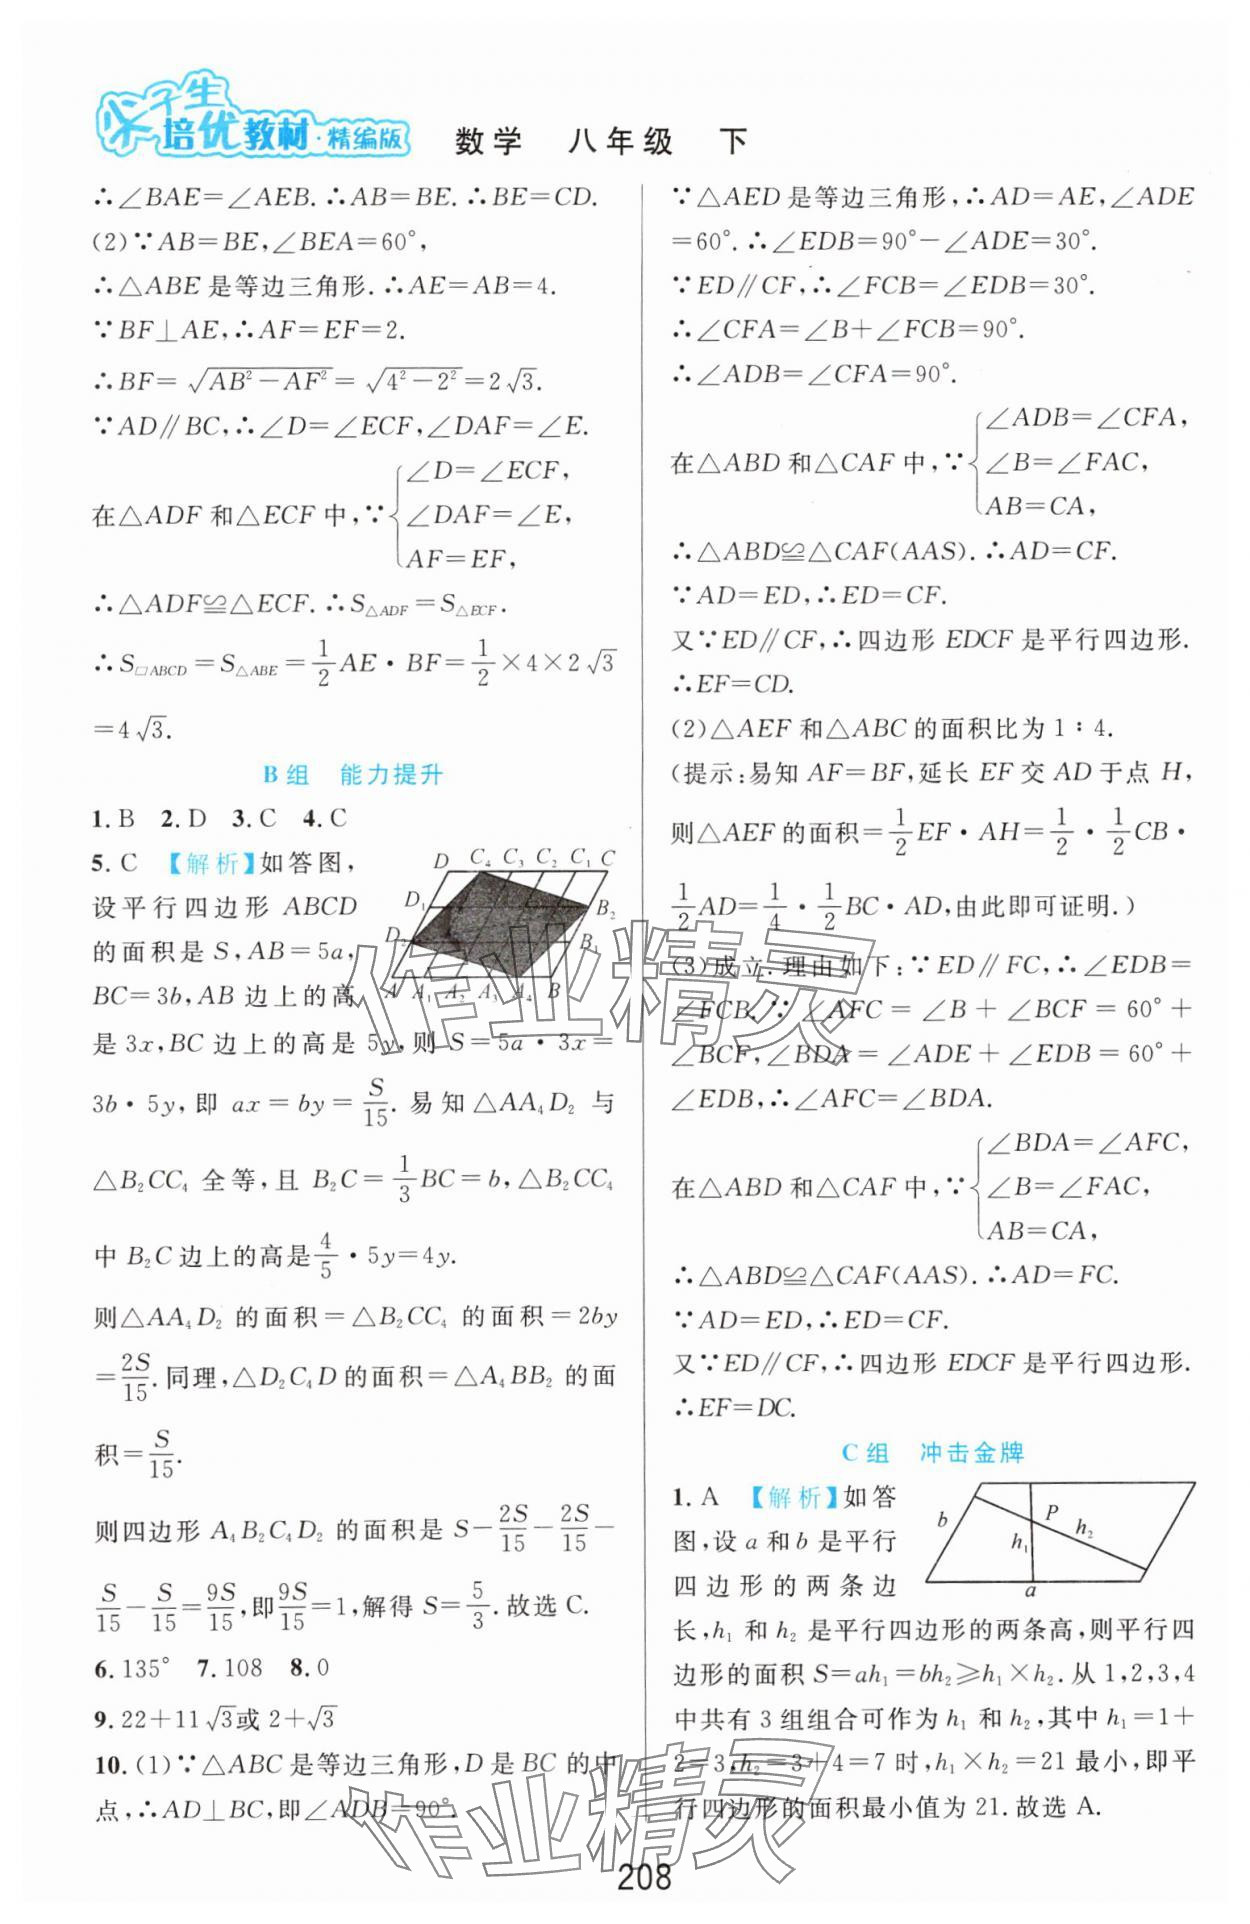 尖子生
培优教材·精编版 数学 八年级 下
∴∠BAE=∠AEB.∴AB=BE.∴BE=CD.
(2)∵AB=BE,∠BEA=60°,
∴△ABE是等边三角形.∴AE=AB=4.
∵BF⊥AE,∴AF=EF=2.
∴BF=√(AB²-AF²)=√(4²-2²)=2√3.
∵AD∥BC,∴∠D=∠ECF,∠DAF=∠E.
在△ADF和△ECF中,∵{∠D=∠ECF,
∠DAF=∠E,
AF=EF,
∴△ADF≌△ECF.∴S△ADF=S△ECF.
∴S□ABCD=S△ABE=1/2AE·BF=1/2×4×2√3
=4√3.
B组 能力提升
1.B 2.D 3.C 4.C
5.C 【解析】如答图,
设平行四边形ABCD
的面积是S,AB=5a,
BC=3b,AB边上的高
是3x,BC边上的高是5y,则S=5a·3x=
3b·5y,即ax=by=S/15.易知△AA₄D₂与
△B₂CC₄全等,且B₂C=1/3BC=b,△B₂CC₄
中B₂C边上的高是4/5·5y=4y.
则△AA₄D₂的面积=△B₂CC₄的面积=2by
=2S/15.同理,△D₂C₄D的面积=△A₄BB₂的面
积=S/15.
则四边形A₄B₂C₄D₂的面积是S-2S/15-2S/15-
S/15-S/15=9S/15,即9S/15=1,解得S=5/3.故选C.
6.135° 7.108 8.0
9.22+11√3或2+√3
10.(1)∵△ABC是等边三角形,D是BC的中
点,∴AD⊥BC,即∠ADB=90°.
D C₄ C₃ C₂ C₁ C
D₁ B₂
D₂ B₁
A A₁ A₂ A₃ A₄ B
∵△AED是等边三角形,∴AD=AE,∠ADE
=60°.∴∠EDB=90°-∠ADE=30°.
∵ED∥CF,∴∠FCB=∠EDB=30°.
∴∠CFA=∠B+∠FCB=90°.
∴∠ADB=∠CFA=90°.
在△ABD和△CAF中,∵{∠ADB=∠CFA,
∠B=∠FAC,
AB=CA,
∴△ABD≌△CAF(AAS).∴AD=CF.
∵AD=ED,∴ED=CF.
又∵ED∥CF,∴四边形EDCF是平行四边形.
∴EF=CD.
(2)△AEF和△ABC的面积比为1∶4.
(提示:易知AF=BF,延长EF交AD于点H,
则△AEF的面积=1/2EF·AH=1/2·1/2CB·
1/2AD=1/4·1/2BC·AD,由此即可证明.)
(3)成立.理由如下:∵ED∥FC,∴∠EDB=
∠FCB.∵∠AFC=∠B+∠BCF=60°+
∠BCF,∠BDA=∠ADE+∠EDB=60°+
∠EDB,∴∠AFC=∠BDA.
在△ABD和△CAF中,∵{∠BDA=∠AFC,
∠B=∠FAC,
AB=CA,
∴△ABD≌△CAF(AAS).∴AD=FC.
∵AD=ED,∴ED=CF.
又∵ED∥CF,∴四边形EDCF是平行四边形.
∴EF=DC.
C组 冲击金牌
1.A 【解析】如答
图,设a和b是平行
四边形的两条边
长,h₁和h₂是平行四边形的两条高,则平行四
边形的面积S=ah₁=bh₂≥h₁×h₂.从1,2,3,4
中共有3组组合可作为h₁和h₂,其中h₁=1+
2=3,h₂=3+4=7时,h₁×h₂=21最小,即平
行四边形的面积最小值为21.故选A.
b P h₁ h₂ a
作业精灵
作业精灵
208